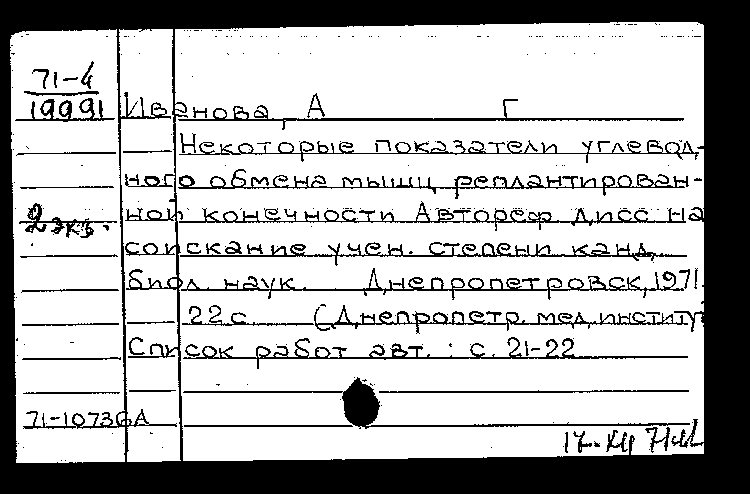 71-4
19991
Иванова, А Г
Некоторые показатели углевод-
ного обмена мышц реплантирован-
2 экз.
ной конечности Автореф дисс на
соискание учен. степени канд.
биол. наук. Днепропетровск, 1971.
22 с. (Днепропетр. мед. институт
Список работ авт. : с. 21-22
71-10736А